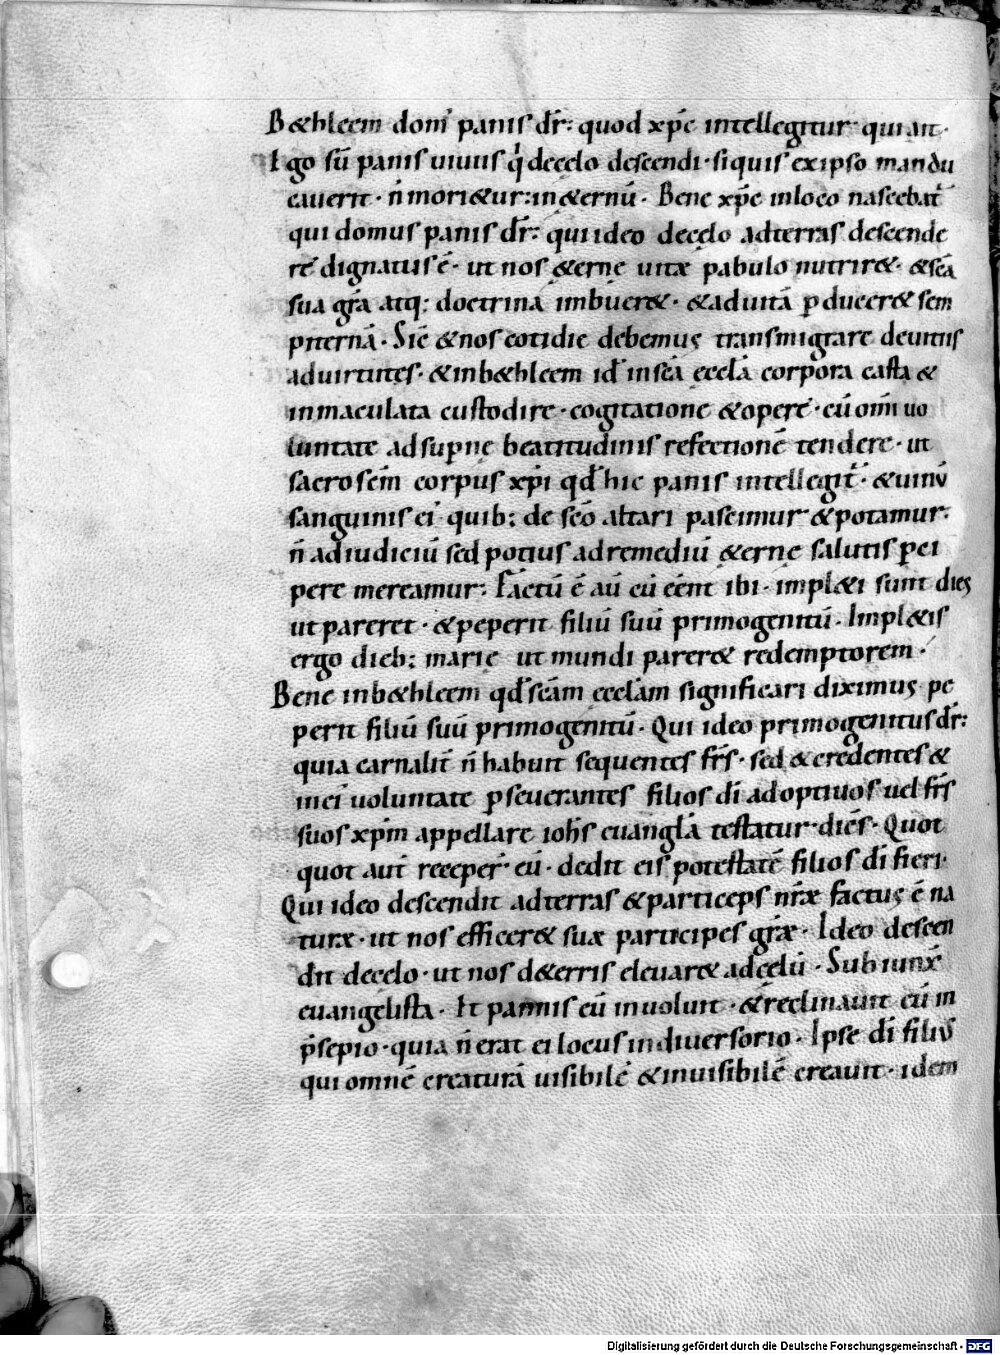 B&hleem dom' panis dr̄: quod xp̄c intellegitur qui ait·
Ego sū panis uiuus q' decęlo descendi· siquis exipso mandu
cauerit· n̄ mori&ur: in&ernū· Bene xp̄c inloco nascebat̄
qui domus panis dr̄· qui ideo decęlo adterras descende
re dignatus ē· ut nos &ernę uitæ pabulo nutrir&· &sc̄a
sua gr̄a atq: doctrina imbuer&· &aduitā ꝑducer& sem
piternā· Sic &nos cotidie debemus transmigrare deuitiis
aduirtutes· &inb&hleem id̄ insc̄a ęccl̄a corpora casta &
inmaculata custodire· cogitatione &opere· cū om̄i uo
luntate adsupnę beatitudinis refectionē tendere· ut
sacrosc̄m corpus xp̄i qd̄ hic panis intellegit̄· &uinū
sanguinis ei' quib: de sc̄o altari pascimur &potamur·
n̄ adiudiciū sed potius adremediū &ernę salutis ꝑci
pere mereamur: Factū ē aū cū eēnt ibi· impl&i sunt dies
ut pareret· &peperit filiū suū primogenitū· Impl&is
ergo dieb: marię ut mundi parer& redemptorem·
Bene inb&hleem qd̄ sc̄am ęccl̄am significari diximus pe
perit filiū suū primogenitū· Qui ideo primogenitus dr̄:
quia carnalit̄ n̄ habuit sequentes fr̄s· sed &credentes &
inei' uoluntate ꝑseuerantes filios dī adoptiuos uel fr̄s
suos xp̄m appellare ioh̄s euangl̄a testatur dicēs· Quot
quot aut̄ receper̄ eū· dedit eis potestatē filios dī fieri·
Qui ideo descendit adterras &particeps nr̄æ factus ē na
turæ· ut nos efficer& suæ participes gr̄æ· Ideo descen
dit decęlo· ut nos d&erris eleuar& adcęlū· Subiunx̄
euangelista· Et pannis eū inuoluit· &reclinauit eū in
p̄sepio· quia n̄ erat ei locus in diuersorio· Ipse dī filius
qui omnē creaturā uisibilē &inuisibilē creauit· idem
Digitalisierung gefördert durch die Deutsche Forschungsgemeinschaft - DFG